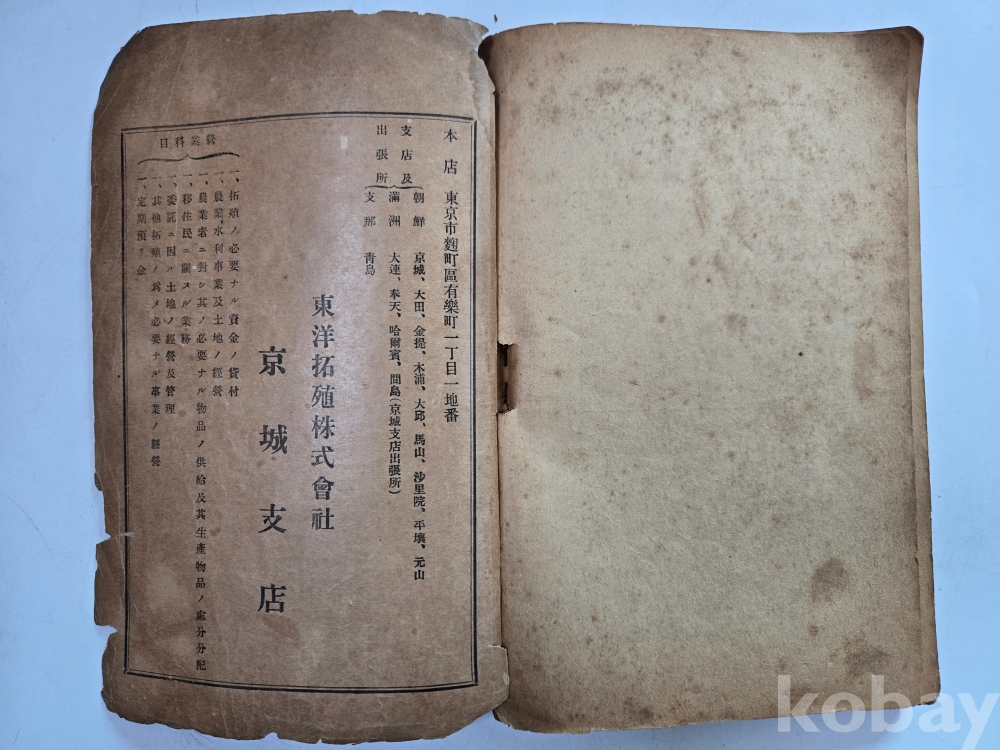 本店 東京市麴町區有樂町一丁目一地番
支店及出張所
朝鮮 京城、大田、金提、木浦、大邱、馬山、沙里院、平壤、元山
滿洲 大連、奉天、哈爾賓、間島(京城支店出張所)
支那 靑島
東洋拓殖株式會社
京城支店
營業科目
一、拓殖ノ必要ナル資金ノ貸付
一、農業、水利事業及土地ノ經營
一、農業者ニ對シ其ノ必要ナル物品ノ供給及其生產物品ノ處分分配
一、移住民ニ關スル業務
一、委託ニ因ル土地ノ經營及管理
一、其他拓殖ノ爲メ必要ナル事業ノ經營
一、定期預リ金
kobay